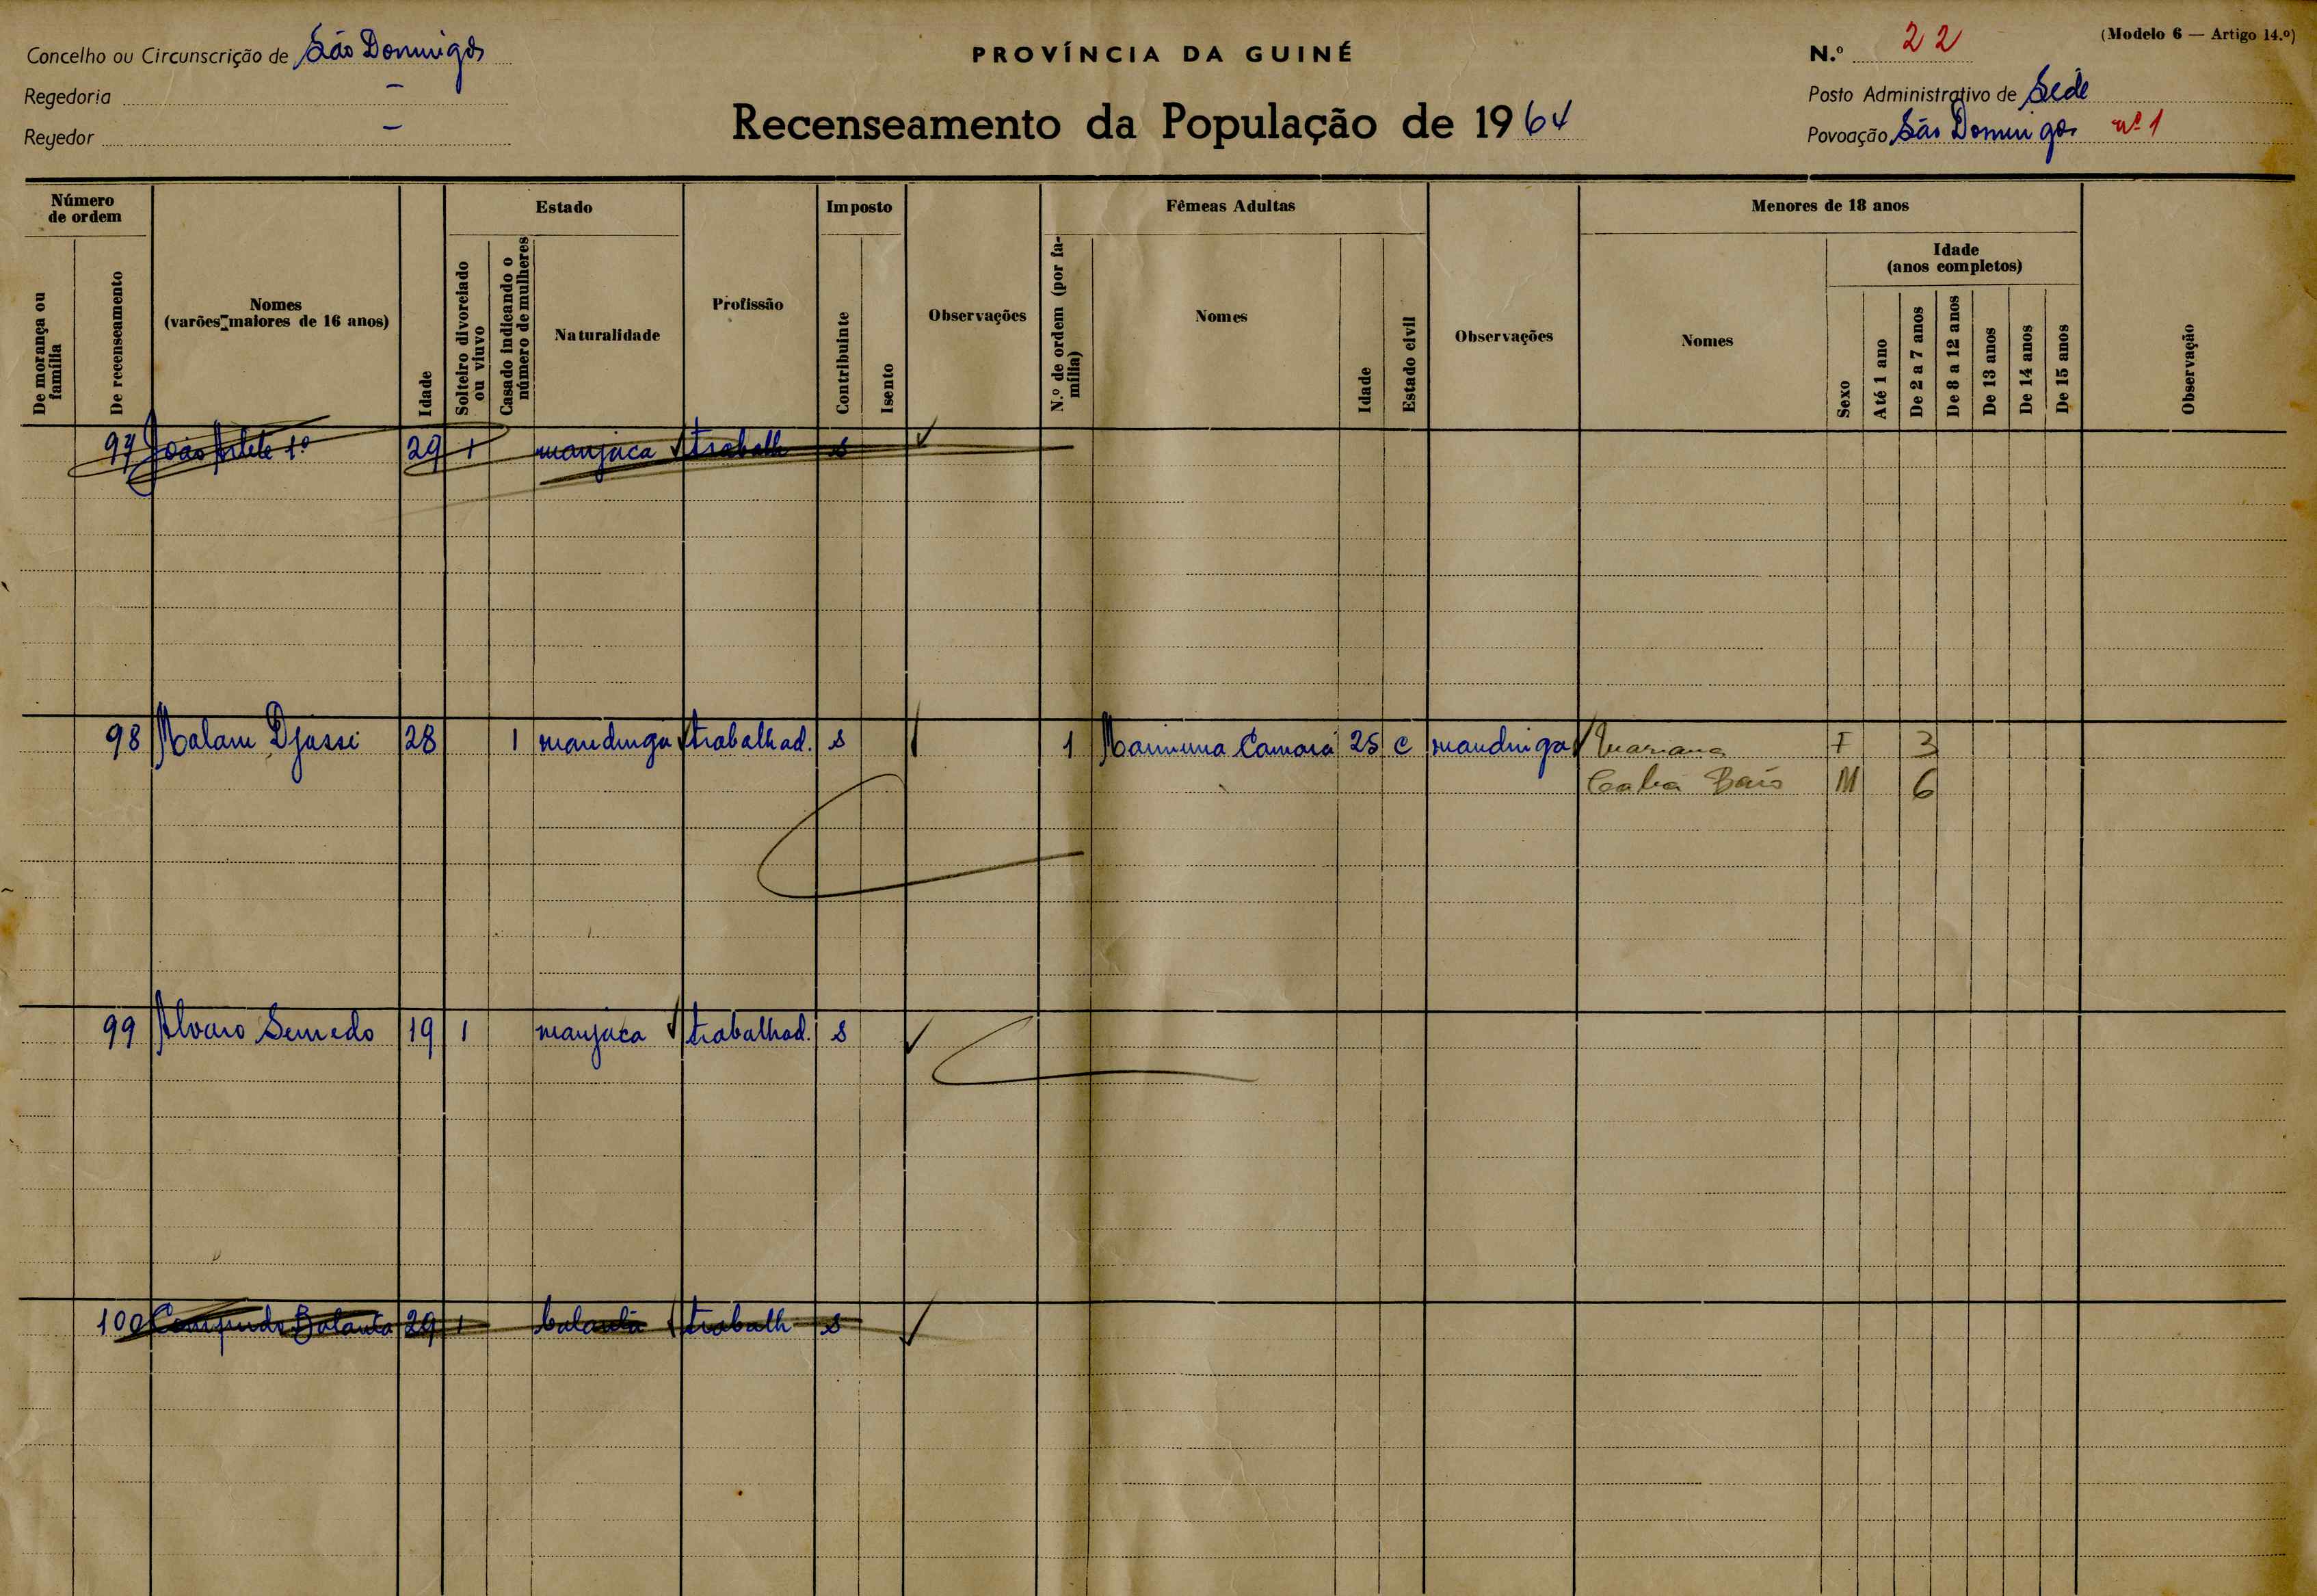 Concelho ou Circunscrição de São Domingos
PROVÍNCIA DA GUINÉ
N.º 22
(Modelo 6 — Artigo 14.º)
Regedoria –
Posto Administrativo de Sede
Regedor –
Recenseamento da População de 1964
Povoação São Domingos nº 1
Número de ordem
Estado
Imposto
Fêmeas Adultas
Menores de 18 anos
De morança ou família
De recenseamento
Nomes (varões maiores de 16 anos)
Idade
Solteiro divorciado ou viuvo
Casado indicando o número de mulheres
Naturalidade
Profissão
Contribuinte
Isento
Observações
N.º de ordem (por família)
Nomes
Idade
Estado civil
Observações
Nomes
Sexo
Idade (anos completos)
Até 1 ano
De 2 a 7 anos
De 8 a 12 anos
De 13 anos
De 14 anos
De 15 anos
Observação
97 João 1º 29 1 manjaca trabalh s
98 Malam Djassi 28 1 mandinga trabalhad. s 1 Mariuma Camara 25 c mandinga Mariama F 3
Baio M 6
99 Alvaro Semedo 19 1 manjaca trabalhad. s
100 Balanta 29 1 balanta trabalh s